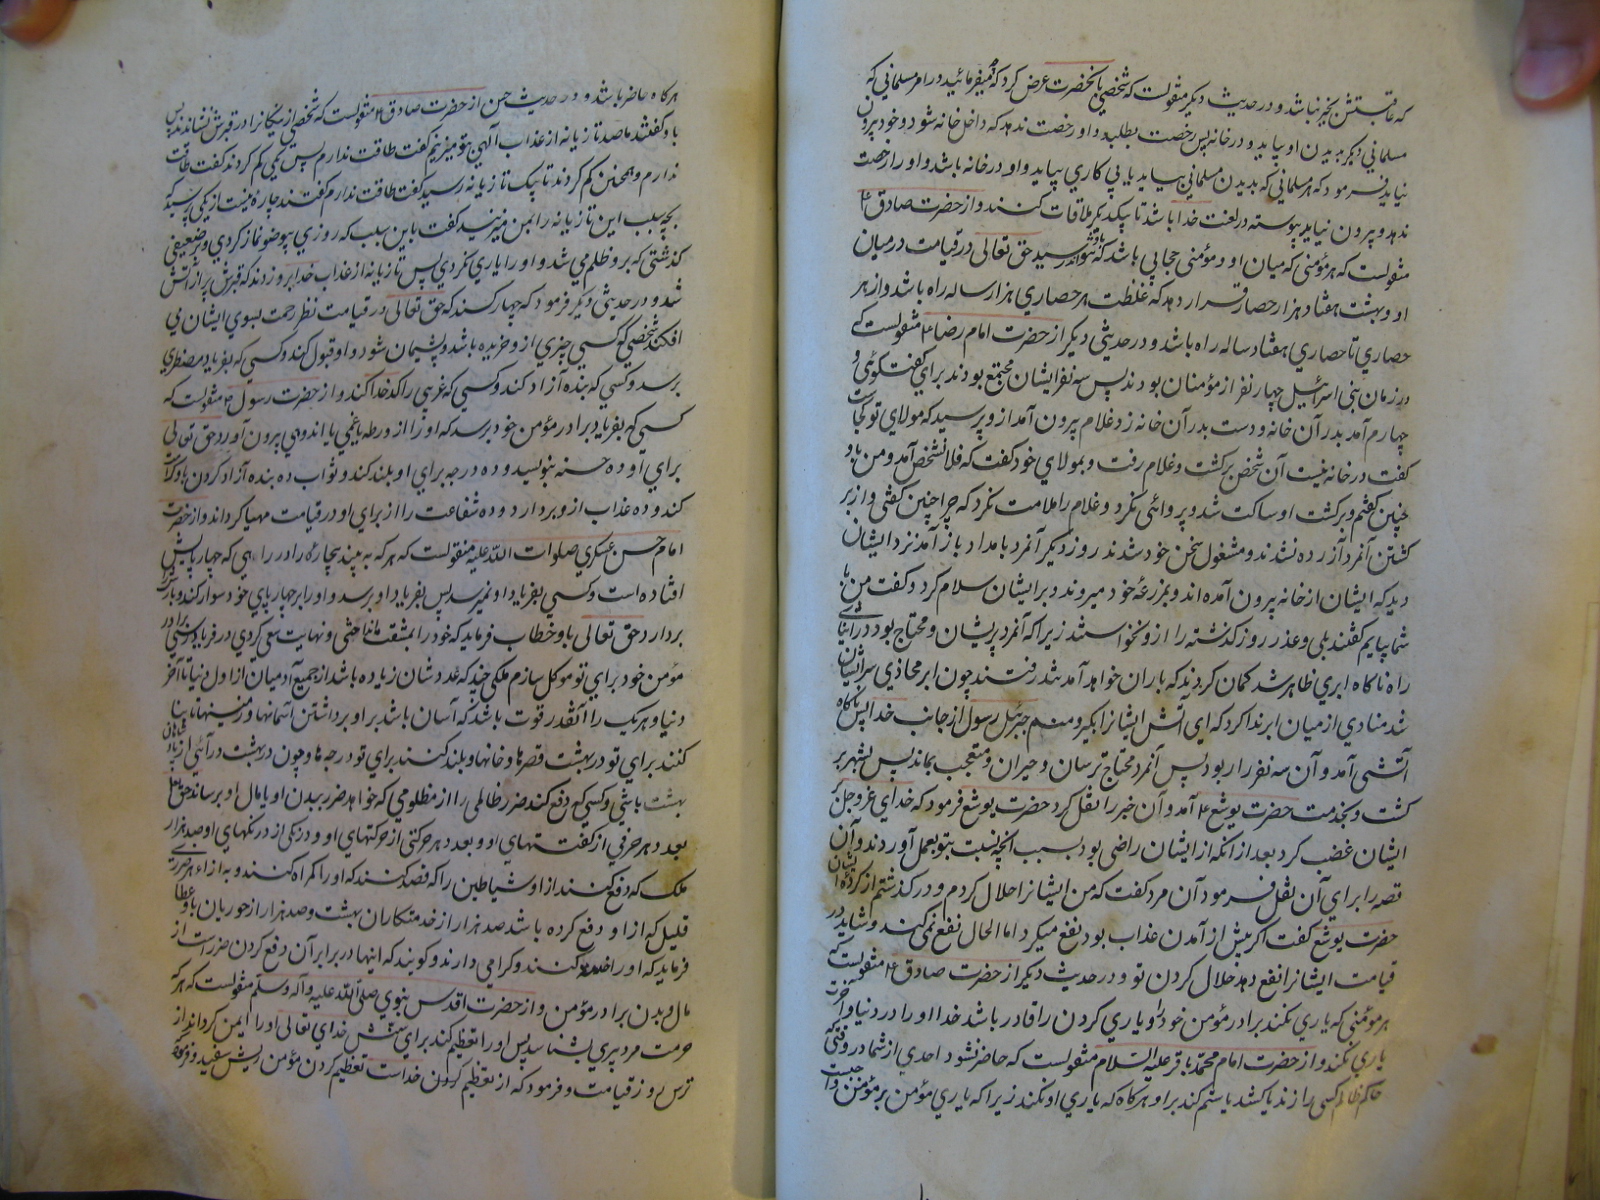 که عاقبتش بخیر نباشد و در حدیث دیگر منقولست که شخصی بآنحضرت عرض کرد که چه میفرمائید در امر مسلمانی که
مسلمانی دیگر بدیدن او بیاید و در خانه پس رخصت بطلبد و او رخصت ندهد که داخل خانه شود و خود بیرون
نیاید فرمود که هر مسلمانی که بدیدن مسلمانی بیاید یا پی کاری بیاید و او در خانه باشد و او را رخصت
ندهد و بیرون نیاید پیوسته در لعنت خدا باشد تا بیکدیگر ملاقات کنند و از حضرت صادق ع
منقولست که هر مؤمنی که میان او و مؤمنی حجابی باشد که باو نتواند رسید حق تعالی در قیامت در میان
او و بهشت هفتاد هزار حصار قرار دهد که غلظت هر حصاری هزار ساله راه باشد و از هر
حصاری تا حصاری هفتاد ساله راه باشد و در حدیثی دیگر از حضرت امام رضا ع منقولست که
در زمان بنی اسرائیل چهار نفر از مؤمنان بودند پس سه نفر ایشان مجتمع بودند برای گفتگوئی و
چهارم آمد بدر آن خانه و دست بدر آن خانه زد و غلام بیرون آمد از و پرسید که مولای تو کجاست
گفت در خانه نیست آن شخص برگشت و غلام رفت و بمولای خود گفت که فلانشخص آمد و من باو
چنین گفتم و برگشت او ساکت شد و پروائی نکرد و غلام را ملامت نکرد که چرا چنین گفتی و از بر
گشتن آنمرد آزرده نشدند و مشغول سخن خود شدند روز دیگر آنمرد بامداد باز آمد نزد ایشان
دید که ایشان از خانه بیرون آمده اند و بمزرعه خود میروند و بر ایشان سلام کرد و گفت من با
شما بیایم گفتند بلی و عذر روز گذشته را از و نخواستند زیرا که آنمرد پریشان و محتاج بود در اثنای
راه ناکاه ابری ظاهر شد گمان کردند که باران خواهد آمد تند رفتند چون ابر محاذی سر ایشان
شد منادی از میان ابر ندا کرد که ای آتش ایشانرا بگیر و منم جبرئیل رسول از جانب خدا پس ناکاه
آتشی آمد و آن سه نفر را ربود پس آنمرد محتاج ترسان و حیران و متعجب بماند پس بشهر بر
گشت و بخدمت حضرت یوشع ع آمد و آن خبر را نقل کرد حضرت یوشع فرمود که خدای عز و جل بر
ایشان غضب کرد بعد از آنکه از ایشان راضی بود بسبب آنچه نسبت بتو بعمل آوردند و آن
قصه را برای آن نقل فرمود آن مرد گفت که من ایشانرا حلال کردم و در گذشتم از کرده ایشان
حضرت یوشع گفت اگر پیش از آمدن عذاب بود نفع میکرد اما الحال نفع نمی کند و شاید در
قیامت ایشانرا نفع دهد حلال کردن تو و در حدیث دیگر از حضرت صادق ع منقولست که
هر مومنی که یاری نکند برادر مؤمن خود را و یاری کردن را قادر باشد خدا او را در دنیا و آخرت
یاری نکند و از حضرت امام محمد باقر علیه السلام منقولست که حاضر نشود احدی از شما در وقتی که
حاکم ظالم کسی را زند یا کشد یا ستم کند بر او هرگاه که یاری او نکند زیرا که یاری مؤمن بر مؤمن واجبست
هرگاه حاضر باشد و در حدیث حسن از حضرت صادق ع منقولست که شخصی از نیکانرا در قبرش نشاندند پس
باو گفتند ما صد تازیانه از عذاب آلهی بتو میزنیم گفت طاقت ندارم پس یکی کم کردند گفت طاقت
ندارم و همچنین کم کردند تا بیک تازیانه رسید گفت طاقت ندارم گفتند چاره نیست از یکی پرسید
بچه سبب این تازیانه را بمن میزنید گفت باین سبب که روزی بیوضو نماز کردی و بر ضعیفی
گذشتی که بر و ظلم می شد و او را یاری نکردی پس تازیانه از عذاب خدا بر و زدند که قبرش پر از آتش
شد و در حدیثی دیگر فرمود که چهار کسند که حق تعالی در قیامت نظر رحمت بسوی ایشان می
افکند شخصی که کسی چیزی از و خریده باشد و پشیمان شود و او قبول کند و کسی که بفریاد مضطری
برسد و کسی که بنده آزاد کند و کسی که عزبی را کدخدا کند و از حضرت رسول ص منقولست که
کسی که بفریاد برادر مؤمن خود برسد که او را از ورطه یا غمی یا اندوهی بیرون آورد حق تعالی
برای او ده حسنه بنویسد و ده درجه برای او بلند کند و ثواب ده بنده آزاد کردن باو کرامت
کند و ده عذاب از و بردارد و ده شفاعت را از برای او در قیامت مهیا کرداند و از حضرت
امام حسن عسکری صلوات الله علیه منقولست که هر که به بیند بیچارۀ را در راهی که چهارپایش
افتاده است و کسی بفریاد او نمیرسد پس بفریاد او برسد و او را بر چهارپای خود سوار کند و بارش
بردارد حق تعالی باو خطاب فرماید که خود را بمشقت انداختی و نهایت سعی کردی در فریادرسی برادر
مؤمن خود برای تو موکل سازم ملکی چند که عددشان زیاده باشد از جمیع آدمیان از اول دنیا تا آخر
دنیا و هر یک را آنقدر قوت باشد که آسان باشد بر او برداشتن آسمانها و زمینها تا بنا
کنند برای تو در بهشت قصرها و خانها و بلند کنند برای تو درجه ها و چون در بهشت در آئی از پادشاهان
بهشت باشی و کسی که دفع کند ضرر ظالمی را از مظلومی که خواهد ضرر ببدن او یا مال او برساند حق تعالی
بعدد هر حرفی از گفتهای او و بعدد هر حرکتی از حرکتهای او و درنگی از درنگهای او صد هزار
ملک که دفع کنند از او شیاطین را که قصد کنند که او را گمراه کنند و به ازاء هر ضرری
قلیل که از او دفع کرده باشد صد هزار از خدمتکاران بهشت و صد هزار از حوریان باو عطا
فرماید که او را خدمت کنند و گرامی دارند و گویند که اینها در برابر آن دفع کردن ضررست از
مال و بدن برادر مؤمن و از حضرت اقدس نبوی صلی الله علیه و آله و سلم منقولست که هر که
حرمت مرد پیری بشناسد پس او را تعظیم کند برای سنش خدای تعالی او را ایمن کرداند از
ترس روز قیامت و فرمود که از تعظیم کردن خداست تعظیم کردن مؤمن ریش سفید و فرمود که